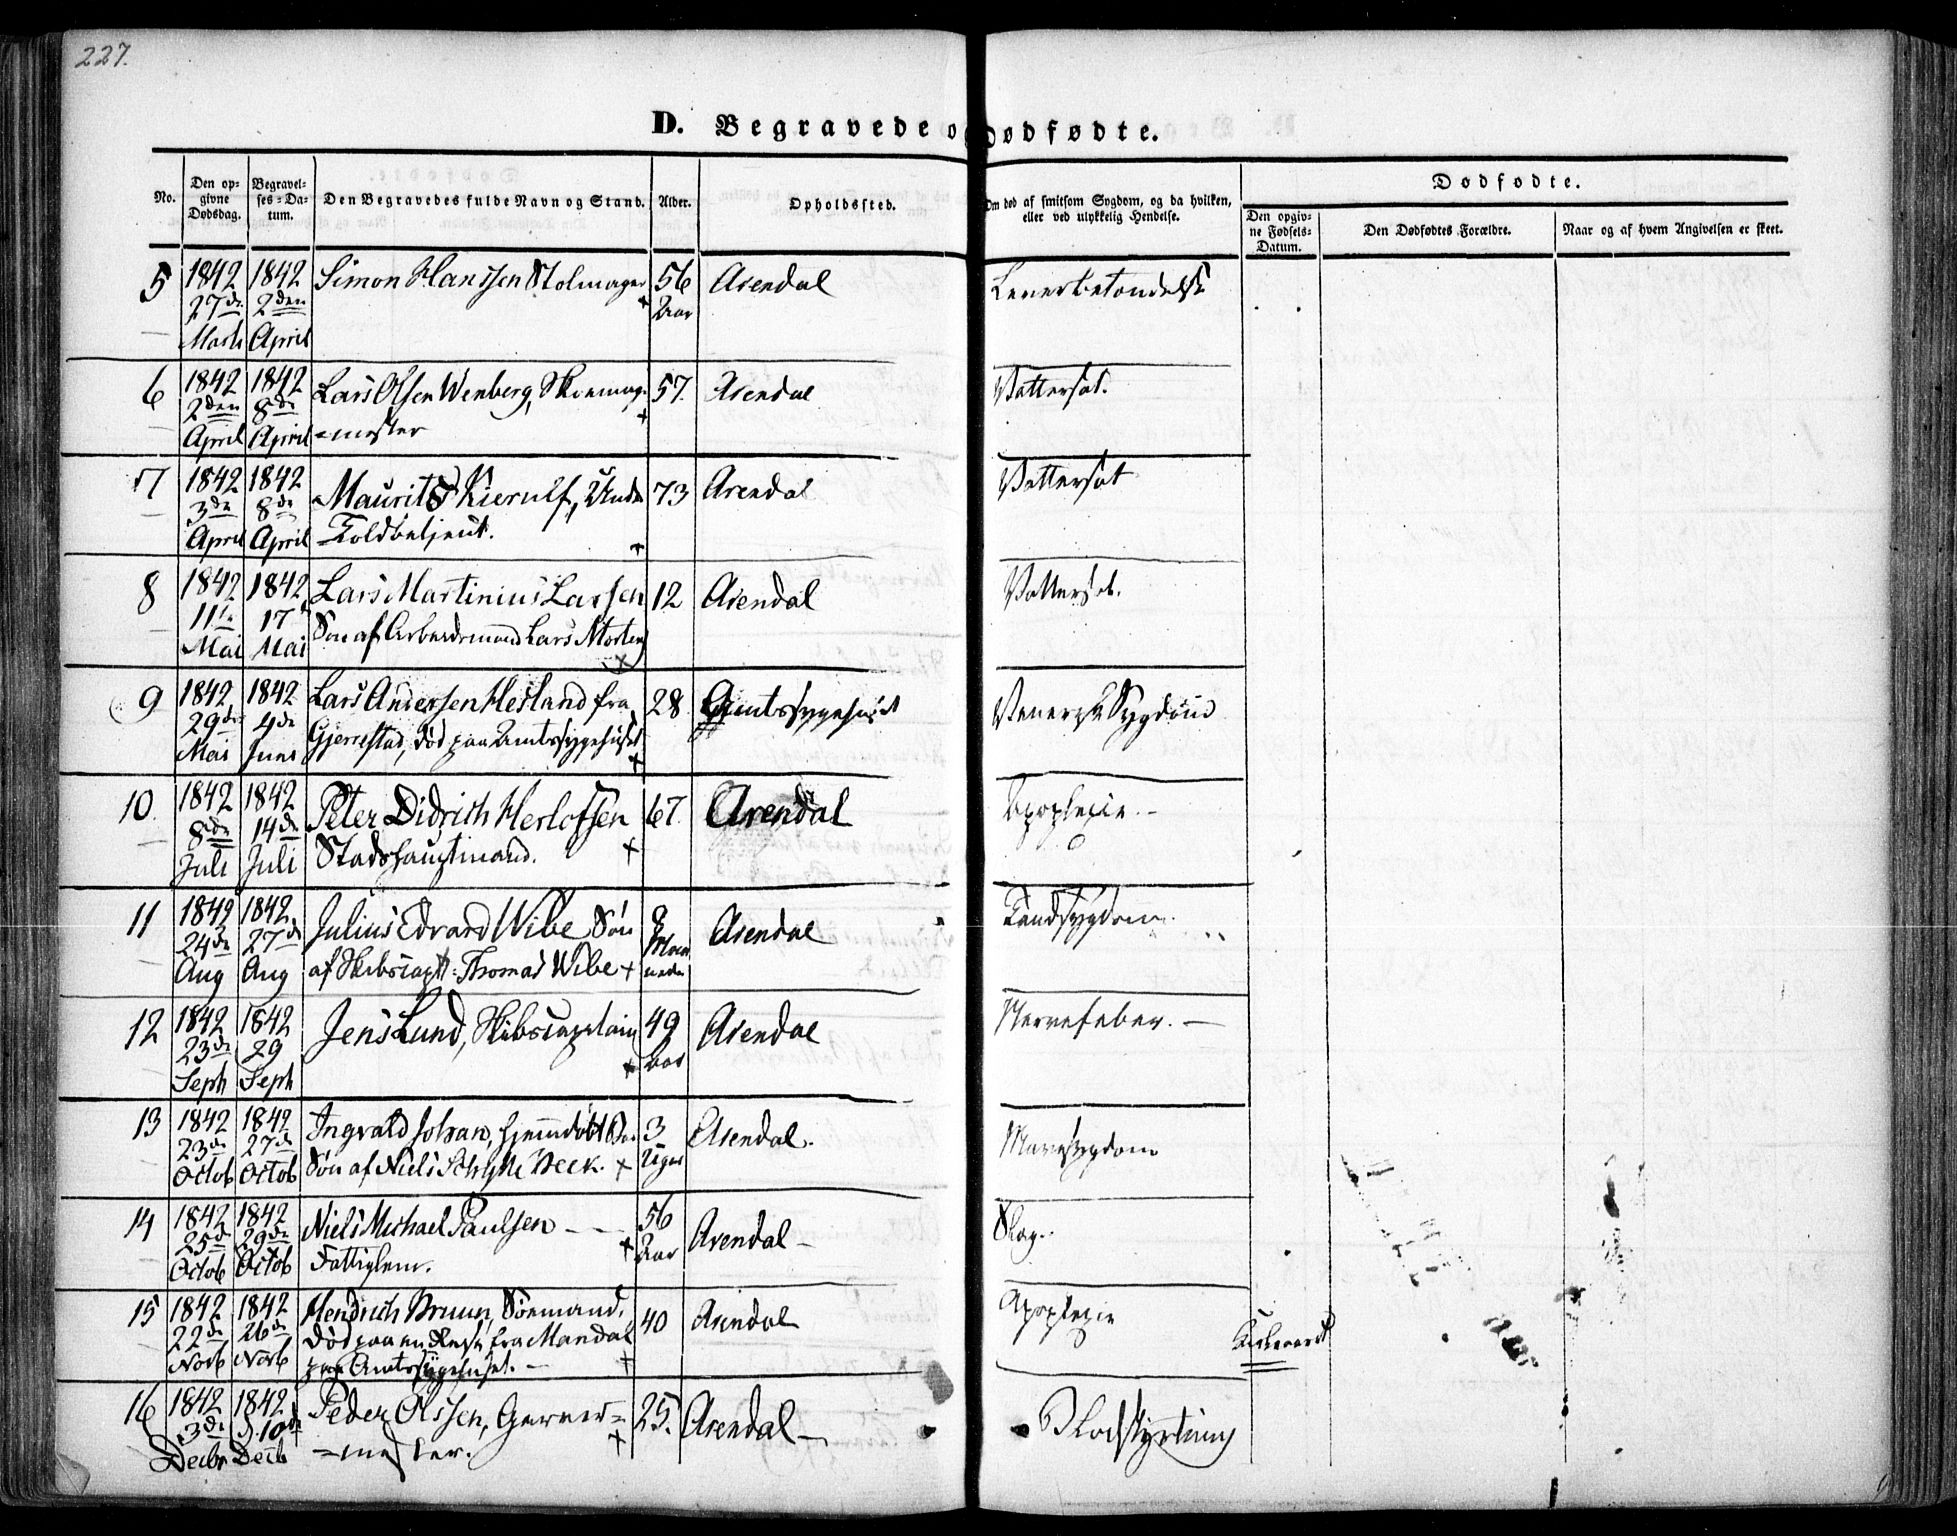 227.
D. Begravede og Dødfødte.
No.
Den opgivne Dødsdag.
Begravelses-Datum.
Den Begravedes fulde Navn og Stand.
Alder.
Opholdssted.
Om død af smitsom Sygdom, og da hvilken, eller ved ulykkelig Hendelse.
Dødfødte.
Den opgivne Fødsels-Datum.
Den Dødfødtes Forældre.
Naar og af hvem Angivelsen er skeet.
5 1842 1842 Simon Hanssen Stolmager 56 Arendal Leverbetændelse
27de 2den + Aar
Marts April
6 1842 1842 Lars Olsen Wenberg, Skoemag- 57. Arendal Vattersot.
2den 8de +
April April =mester
7 1842 1842 Maurits Kierulf, Under 73 Arendal Vattersot
3de 8de
April April =Toldbetjent. +
8 1842 1842 Lars Martinius Larsen 12 Arendal Vattersot.
11te 17 Søn af Arbeidsmand Lars Morten
Mai Mai +
9 1842 1842 Lars Anderssen Hesland fra 28 Amtssygehuset Venerisk Sygdom
29de 4de Gjerrestad, død paa Amtssygehuset
Mai Juni +
10. 1842 1842 Peter Didrich Herlofsen 67. Arendal Apoplexie. -
8de 14de
Juli Juli Stadshauptmand. +
11 1842 1842 Julius Edvard Wibe Søn 8 Arendal Tandsygdom.
24de 27de Maa
Aug Aug af Skibscapt: Thomas Wibe + neder
12 1842 1842 Jens Lund, Skibscaptain 49 Arendal Nervefeber. -
23de 29
Septb Septb + Aar
13 1842 1842 Ingvald Johan, hjemmdøbt 3 Arendal. Mavesygdom
23de 27de
Octob Octob Søn af Niels Schytte Beck. + Uger
14 1842 1842 Niels Michael Paulsen - - 56 Arendal - Slag.
25de 29de + Aar
Octob Octob Fattiglem.
15 1842 1842 Hendrich Bruun, Sømand, 40 Arendal Apoplexie
22de 26de død paa en Reise fra Mandal
Novb Novb paa Amtssygehuset. - +
16 1842 1842 Peder Olssen, Garver= 25. Arendal - Blodstyrtning
3de d. 10de +
Decbr Decb =mester.